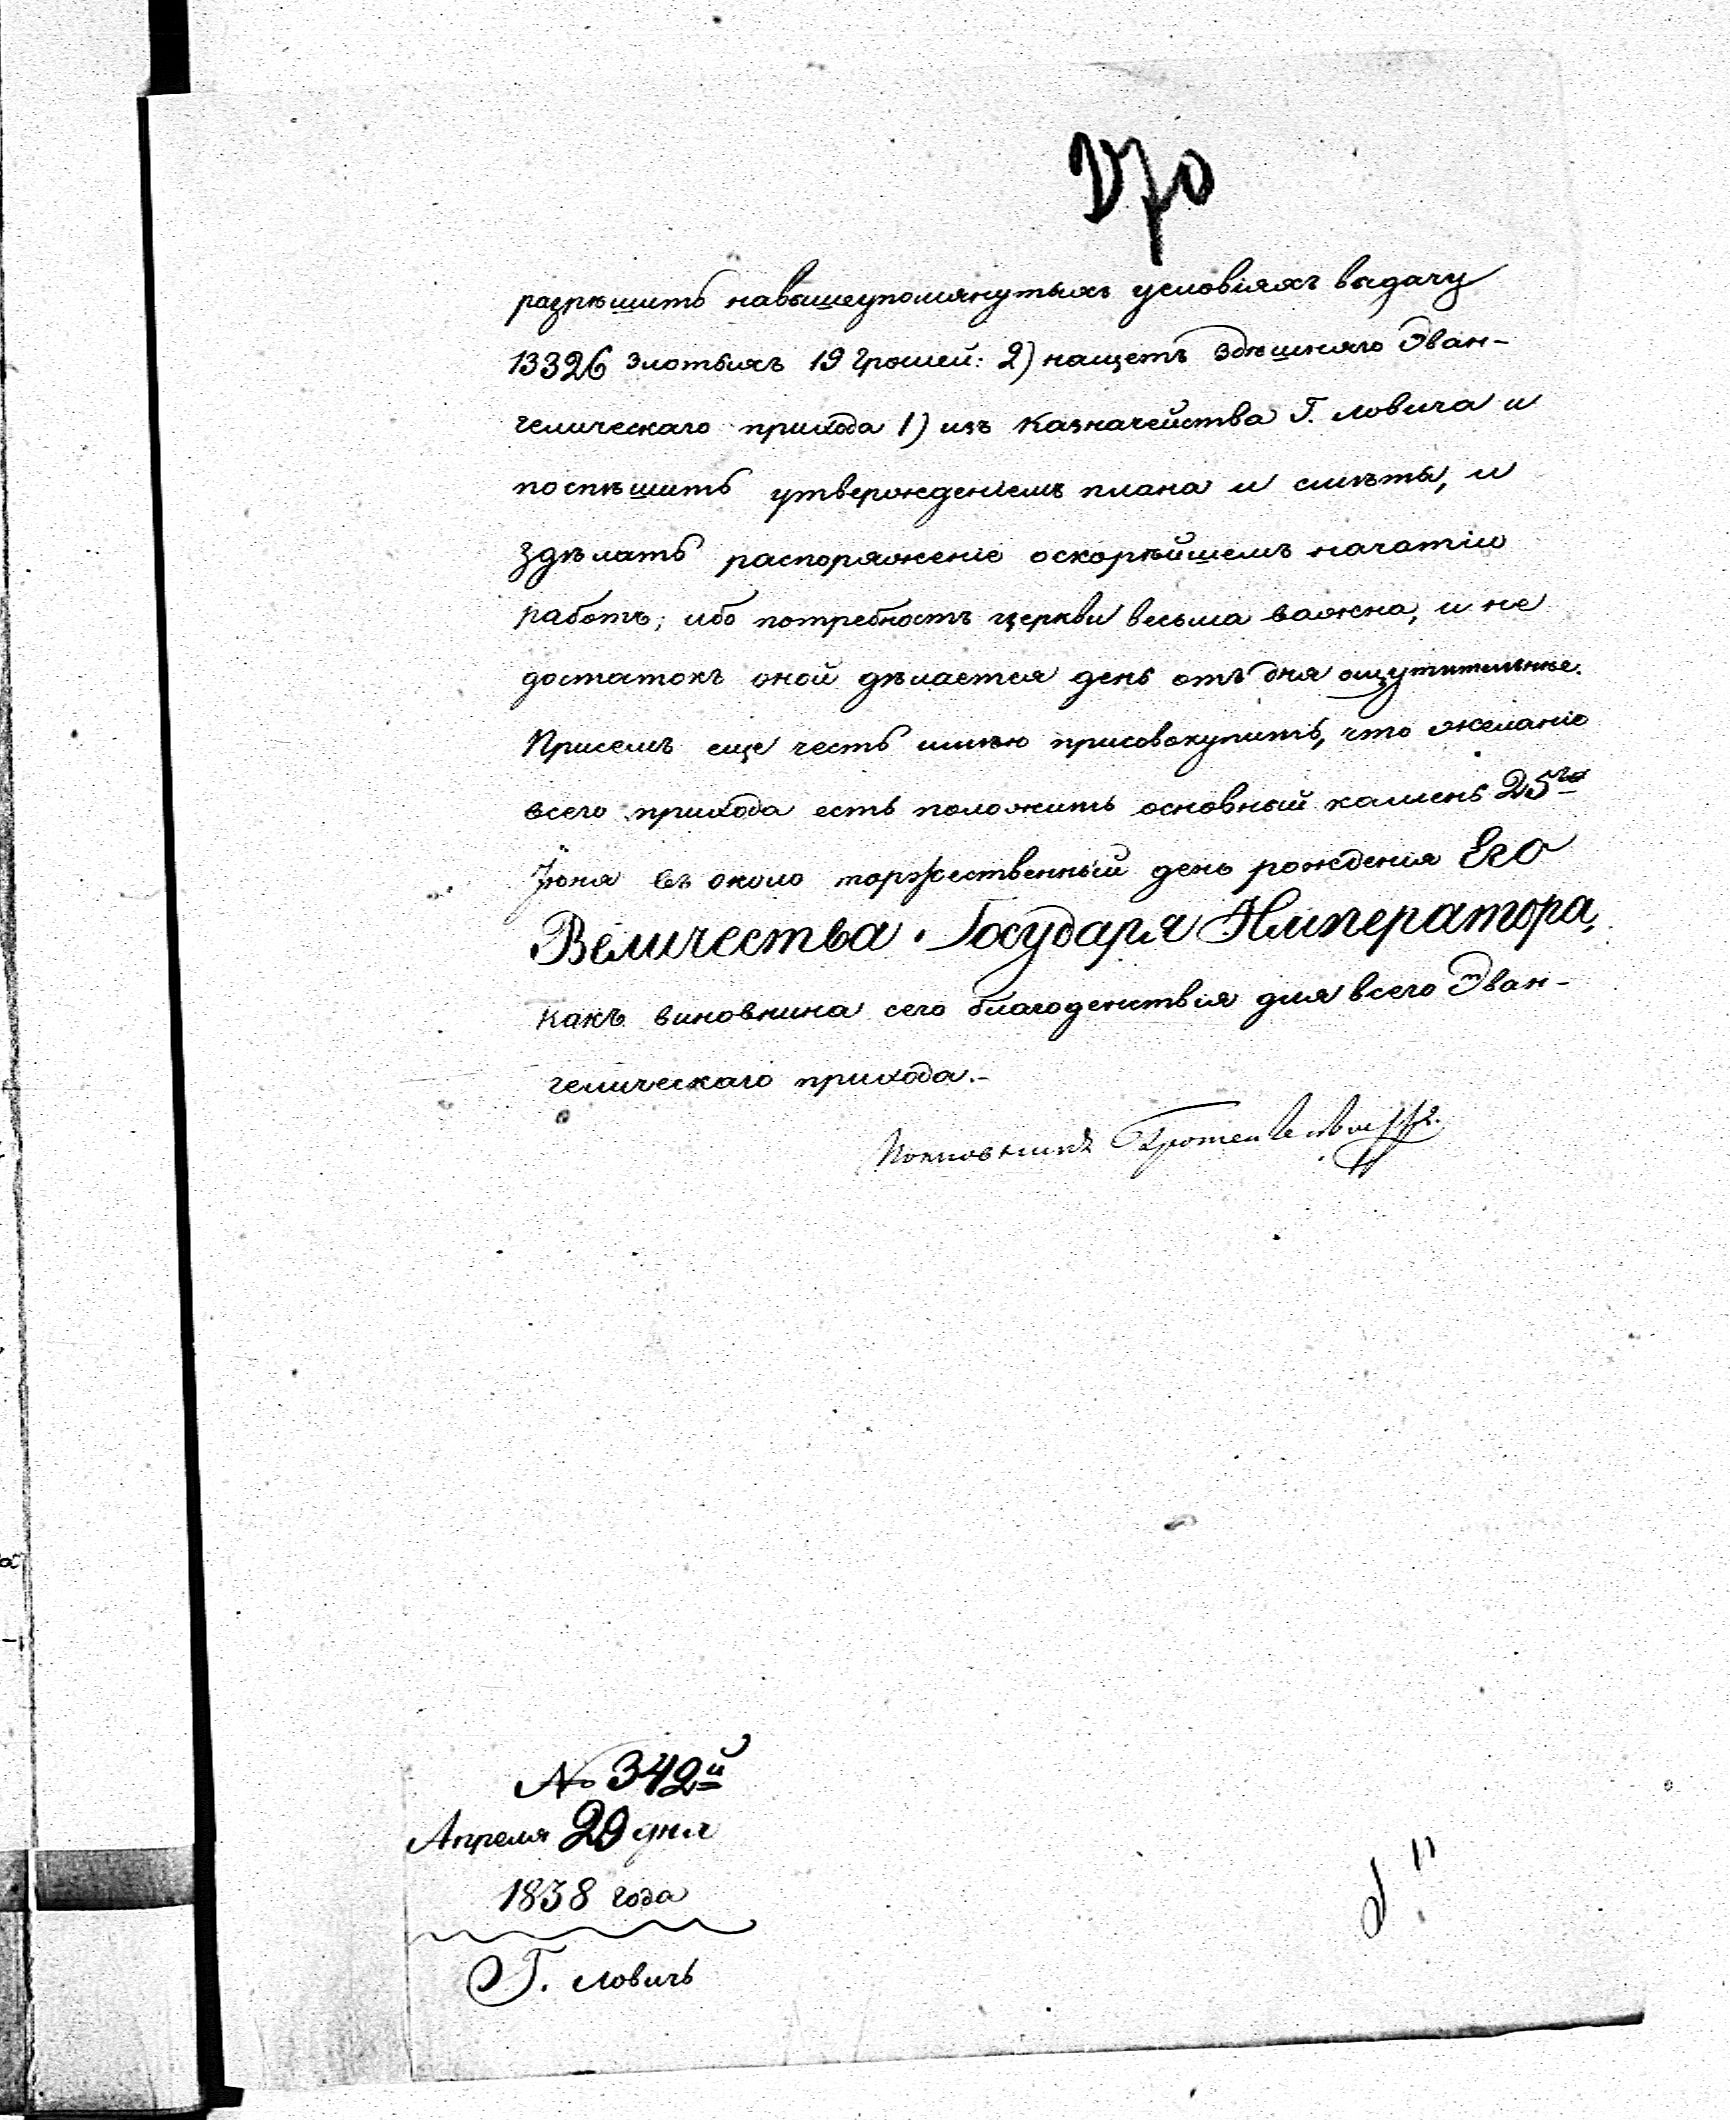 разрѣшить навышеупомянутыхъ условіяхъ выдачу
13326 злотыхъ 19 грошей: 2) нащетъ здѣшняго Эван-
гелическаго прихода 1) изъ Казначейства Г. Ловича и
поспѣшить утвержденіемъ плана и смѣты, и
здѣлать распоряженіе оскорѣйшемъ начатію
работъ, ибо потребность церкви весьма важна, и не
достатокъ оной дѣлается день отъ дня ощутительнѣе.
Присемъ еще честь имѣю присовокупить, что желаніе
всего прихода есть положить основный камень 25го
Іюня въ около торжественный день рожденія Его
Величества Государя Императора,
какъ виновника сего благоденствія для всего Эван-
гелическаго прихода.-
Полковникъ
№ 342й
Апреля 29 дня
1838 года
Г. Ловичь